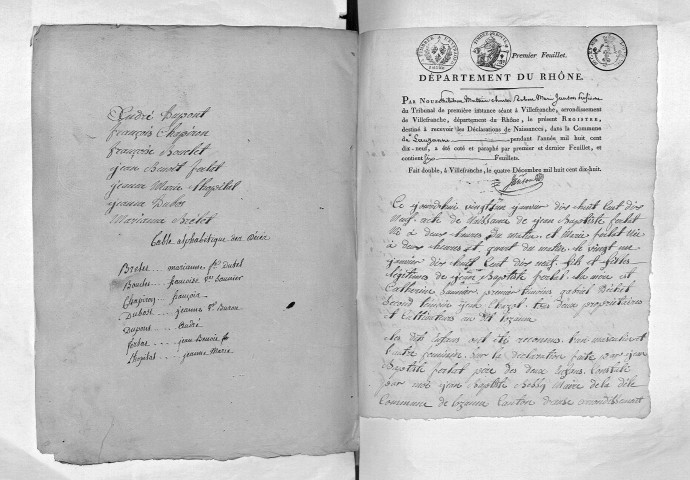 André Dupont
françois Chapiron
françoise Bouchet
jean Benoit forlat
jeanne Marie Shopitel
jeanne Dubos
Marianne Brelet
Table alphabetique des décèz
Brelet ... marianne fe Dubel
Bouchet ... françoise ve Saunier
Chapiron ... françois
Dubost ... jeanne ve Buron
Dupont ... André
forlat ... jean Benoit
Shopital ... jeanne Marie
Premier Feuillet.
DÉPARTEMENT DU RHÔNE.
PAR NOUS
du Tribunal de première instance séant à Villefranche, arrondissement
de Villefranche, département du Rhône, le présent REGISTRE,
destiné à recevoir les Déclarations de Naissances, dans la Commune
pendant l'année mil huit cent
dix-neuf, a été coté et paraphé par premier et dernier Feuillet, et
contient Six Feuillets.
Fait double, à Villefranche, le quatre Décembre mil huit cent dix-huit.
Ce jourdhui vingt un janvier dix huit Cent dix
Neuf, acte de Naissance de jean Baptiste forlat
Né à deux heures du matin, et Marie forlat Née
à deux heures et quart du matin, le vingt un
janvier dix huit Cent dix neuf, fils et filles
légitimes de jean Baptiste forlat, la mère est
Catherine Saunier, premier temoins gabriel
Second temoin jean tres deux propriétaires
et Cultivateurs au dit lozanne
les dits enfans ont été reconnus l'un masculin et
l'autre feminine, sur la declaration faite par jean
Baptiste forlat père des deux enfans, Constaté
par moi jean Baptiste Maire de la dite
Commune de lozanne Canton d'anse arrondissement